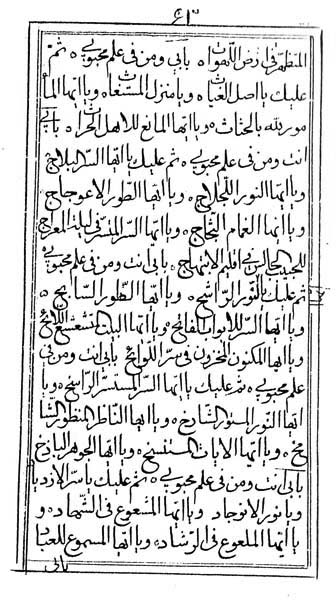 المتظهر في ارض اللاهوات بابي ومن في علم محبوبي ثم
عليك يا اصل الغياث ويا منزل المستغاث ويا ايها الما
مور لله بالحثاث ويا ايها المانع للاهل الحراث بابي
انت ومن في علم محبوبي ثم عليك يا ايها السر البلاج
ويا ايها النور اللجلاج ويا ايها الطور الاعوجاج
ويا ايها الغمام الثجاج ويا ايها السر المستر في ليلة المعراج
للحبيب الجالس في اقليم الابتهاج بابي انت ومن في علم محبوبي
ثم عليك يا ايها النور الراشح ويا ايها الطور السابح
ويا ايها السر للابواب المفاتح ويا ايها البيت المتشعشع اللائح
ويا ايها المكنون المخزون في سر اللوائح بابي انت ومن في
علم محبوبي ثم عليك يا ايها السر المستسر الراسخ ويا
ايها النور المستور الشادخ ويا ايها الناظر المنظور الشا
مخ ويا ايها الايات المستنسخ ويا ايها الجوهر الباذخ
بابي انت ومن في علم محبوبي ثم عليك يا سر الازدياد
ويا نور الانوجاد ويا ايها المشعوع في الشهاد و
يا ايها الملعوع في الرشاد ويا ايها المسموع للعباد
بابي